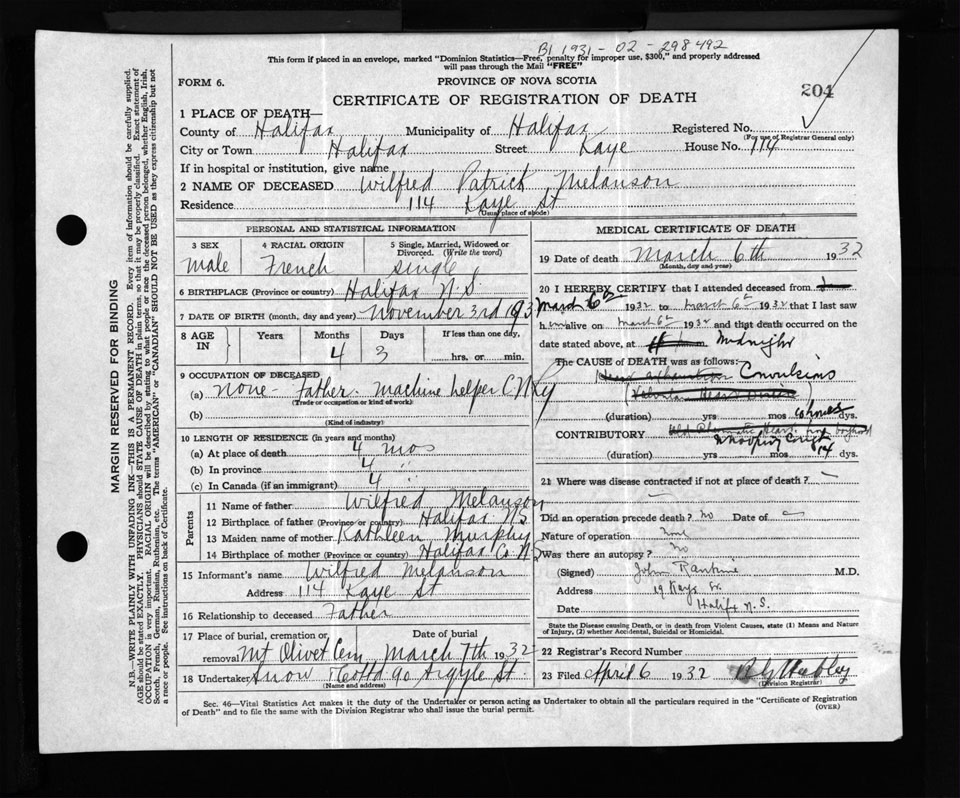 B1 1931 - 02 - 298492
This form if placed in an envelope, marked "Dominion Statistics—Free, penalty for improper use, $300," and properly addressed
will pass through the Mail "FREE"
FORM 6.
PROVINCE OF NOVA SCOTIA
204
CERTIFICATE OF REGISTRATION OF DEATH
1 PLACE OF DEATH—
County of Halifax Municipality of Halifax Registered No.
(For use of Registrar General only)
City or Town Halifax Street Kaye House No. 114
If in hospital or institution, give name
2 NAME OF DECEASED Wilfred Patrick Melanson
Residence 114 Kaye St
(Usual place of abode)
PERSONAL AND STATISTICAL INFORMATION
3 SEX 4 RACIAL ORIGIN 5 Single, Married, Widowed or
Divorced. (Write the word)
male French single
6 BIRTHPLACE (Province or country) Halifax N.S.
7 DATE OF BIRTH (month, day and year) November 3rd 193
8 AGE IN Years Months Days If less than one day,
4 3 hrs. or min.
9 OCCUPATION OF DECEASED
(a) none - father - machine helper C N Ry
(Trade or occupation or kind of work)
(b)
(Kind of industry)
10 LENGTH OF RESIDENCE (in years and months)
(a) At place of death 4 mos
(b) In province 4 "
(c) In Canada (if an immigrant) 4 "
Parents
11 Name of father Wilfred Melanson
12 Birthplace of father (Province or country) Halifax NS
13 Maiden name of mother Kathleen Murphy
14 Birthplace of mother (Province or country) Halifax Co NS
15 Informant's name Wilfred Melanson
Address 114 Kaye St
16 Relationship to deceased Father
17 Place of burial, cremation or removal Date of burial
Mt Olivet Cem March 7th 1932
18 Undertaker Snow & Co Ltd 90 Argyle St.
(Name and address)
MEDICAL CERTIFICATE OF DEATH
19 Date of death March 6th 1932
(Month, day and year)
20 I HEREBY CERTIFY that I attended deceased from
March 6th 1932 to March 6th 1932 that I last saw
him alive on March 6th 1932 and that death occurred on the
date stated above, at Midnight
The CAUSE OF DEATH was as follows:
Convulsions
(duration) yrs mos dys.
CONTRIBUTORY
Whooping Cough
(duration) yrs mos 14 dys.
21 Where was disease contracted if not at place of death?
Did an operation precede death? no Date of
Nature of operation
Was there an autopsy? No
(Signed) John Rankine M.D.
Address 19 Kaye St.
Date Halifax N.S.
State the Disease causing Death, or in death from Violent Causes, state (1) Means and Nature
of Injury, (2) whether Accidental, Suicidal or Homicidal.
22 Registrar's Record Number
23 Filed April 6 1932
(Division Registrar)
Sec. 46—Vital Statistics Act makes it the duty of the Undertaker or person acting as Undertaker to obtain all the particulars required in the "Certificate of Registration
of Death" and to file the same with the Division Registrar who shall issue the burial permit.
(OVER)
MARGIN RESERVED FOR BINDING
N.B.—WRITE PLAINLY WITH UNFADING INK—THIS IS A PERMANENT RECORD. Every item of information should be carefully supplied.
AGE should be stated EXACTLY. PHYSICIANS should STATE CAUSE OF DEATH in plain terms, so that it may be properly classified. Exact statement of
OCCUPATION is very important. RACIAL ORIGIN will be described by stating to what people or race the deceased person belonged, whether English, Irish,
Scotch, French, German, Russian, Ruthenian, etc. The terms "AMERICAN" or "CANADIAN" SHOULD NOT BE USED as they express citizenship but not
a race or people. See instructions on back of Certificate.